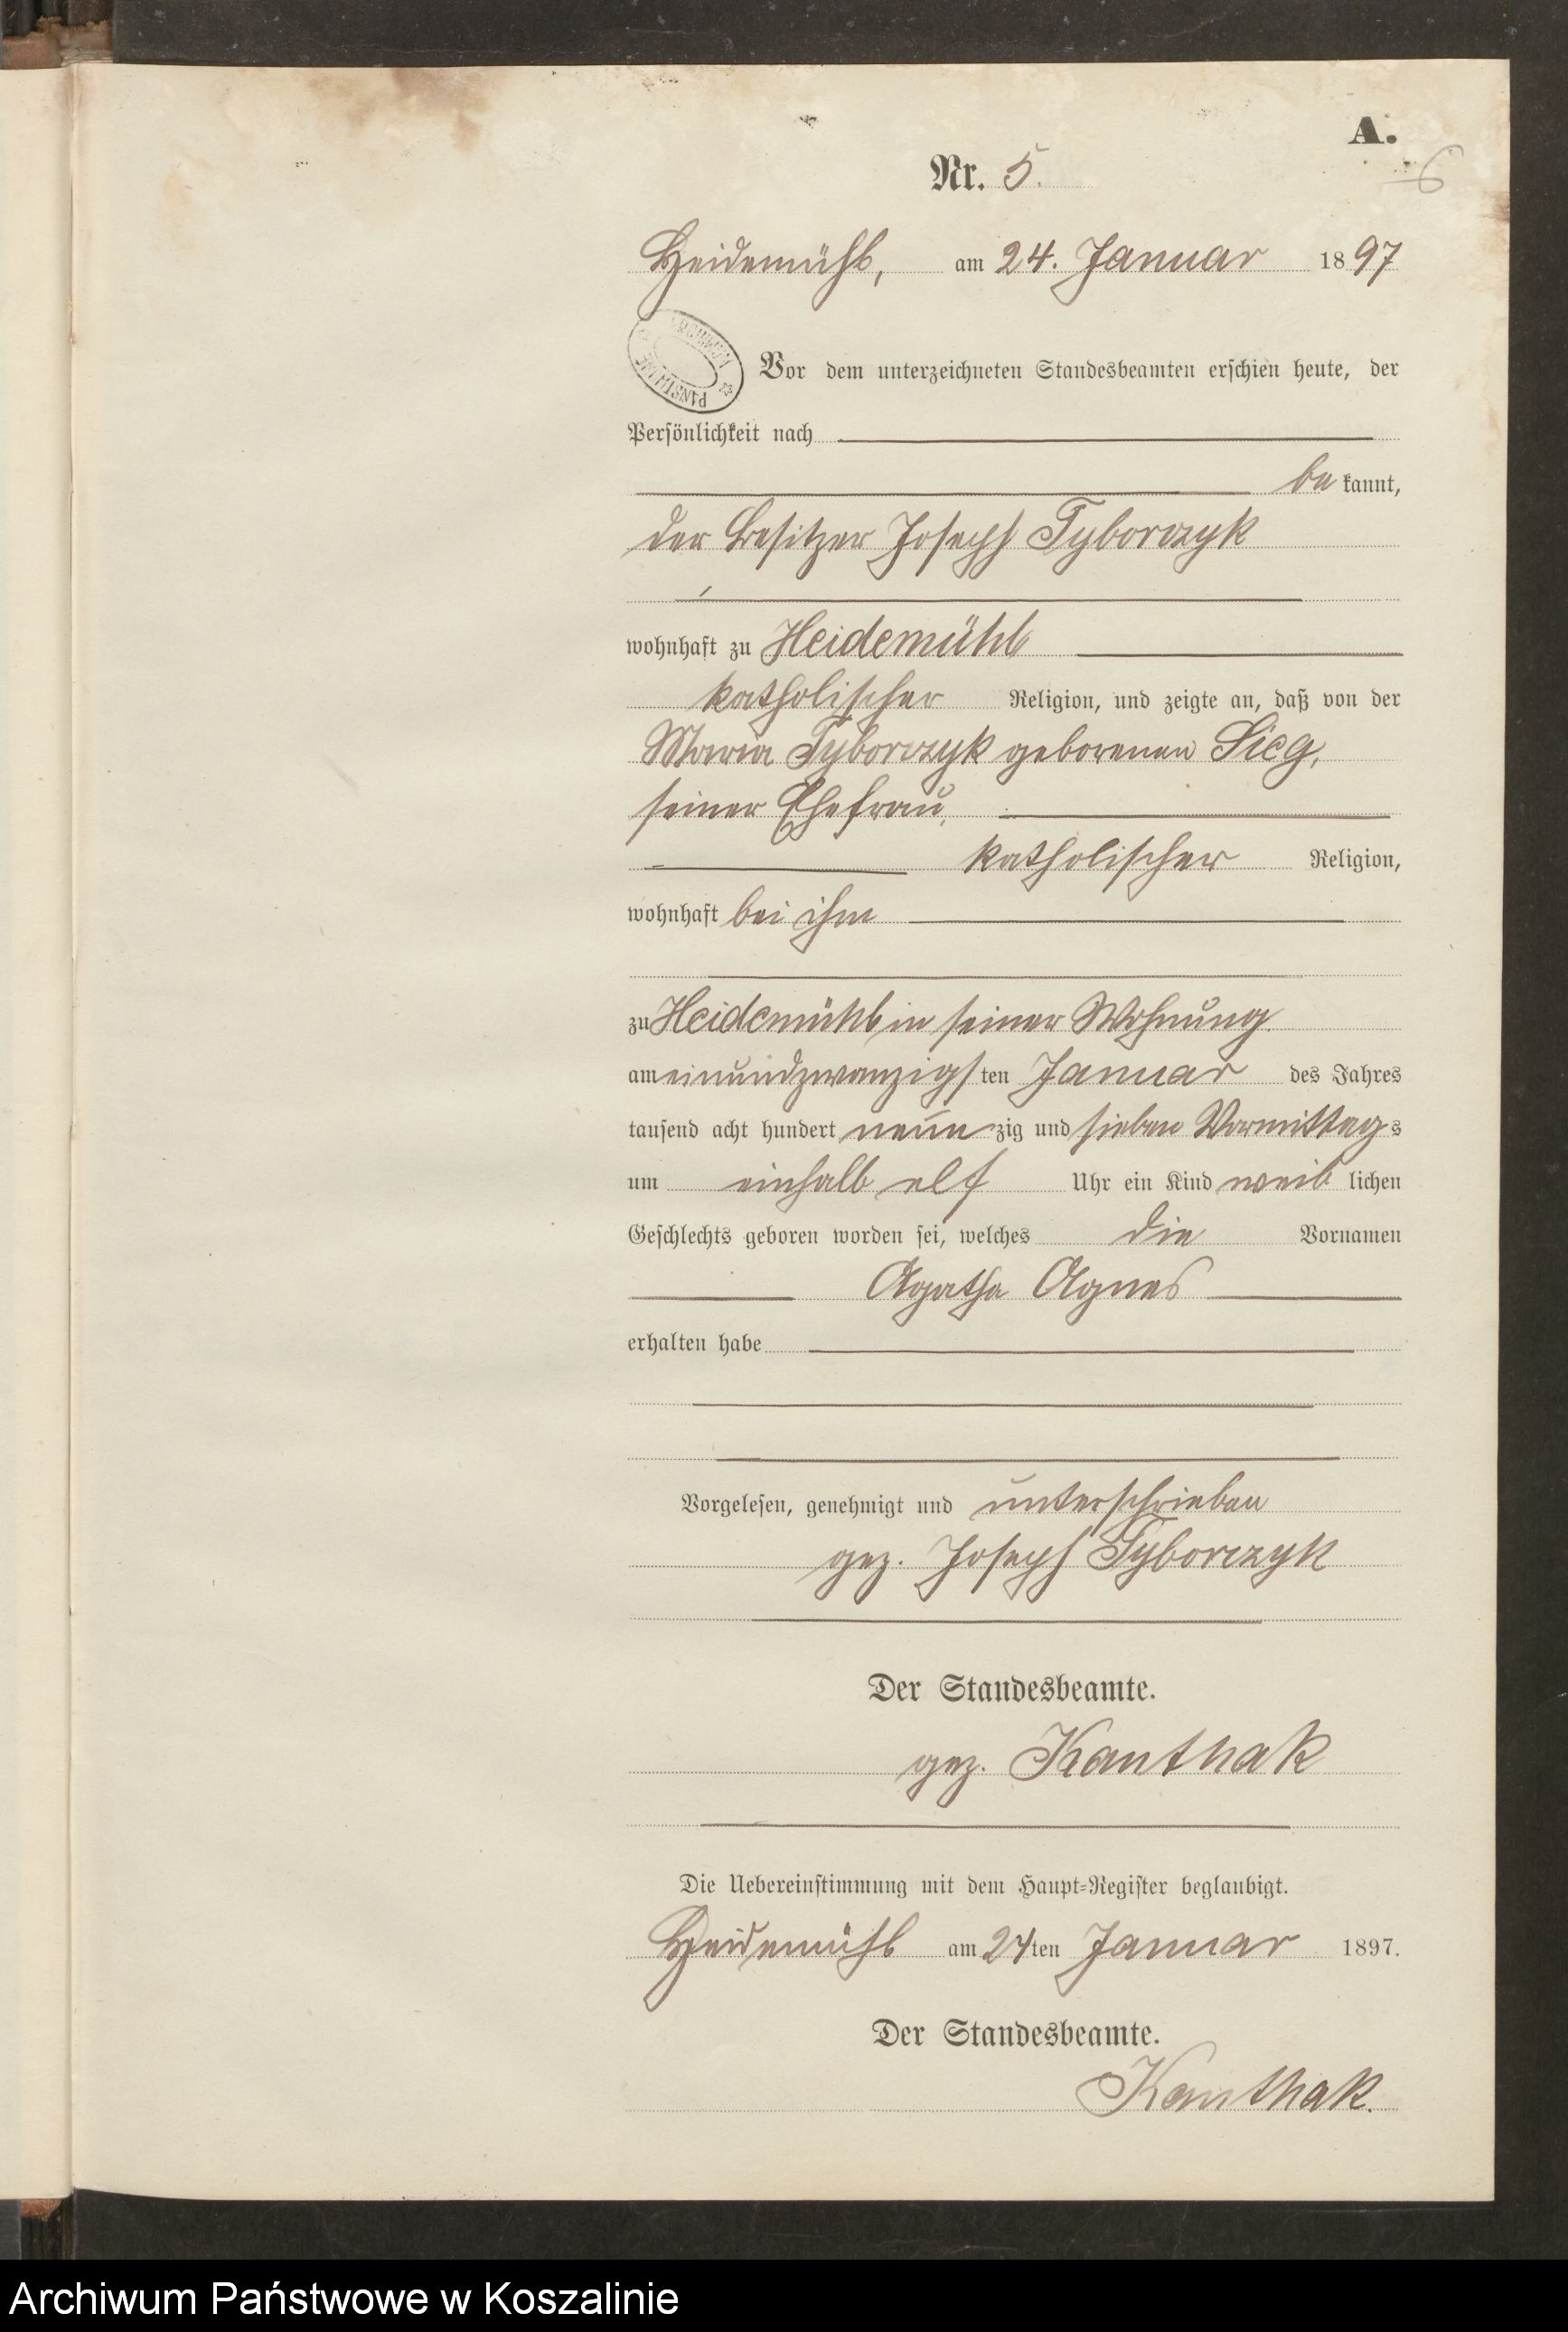 A.
6
Nr. 5.
Heidemühl, am 24. Januar 1897
ARCHIWUM PAŃSTWOWE
Vor dem unterzeichneten Standesbeamten erschien heute, der
Persönlichkeit nach
be kannt,
der Besitzer Joseph Tyborczyk
wohnhaft zu Heidemühl
katholischer Religion, und zeigte an, daß von der
Maria Tyborczyk geborenen Sieg,
seiner Ehefrau,
katholischer Religion,
wohnhaft bei ihm
zu Heidemühl in seiner Wohnung
am einundzwanzigs ten Januar des Jahres
tausend acht hundert neun zig und sieben Vormittag s
um einhalb elf Uhr ein Kind weib lichen
Geschlechts geboren worden sei, welches die Vornamen
Agatha Agnes
erhalten habe
Vorgelesen, genehmigt und unterschrieben
gez. Joseph Tyborczyk
Der Standesbeamte.
gez. Kanthak
Die Uebereinstimmung mit dem Haupt-Register beglaubigt.
Heidemühl am 24ten Januar 1897.
Der Standesbeamte.
Kanthak.
Archiwum Państwowe w Koszalinie